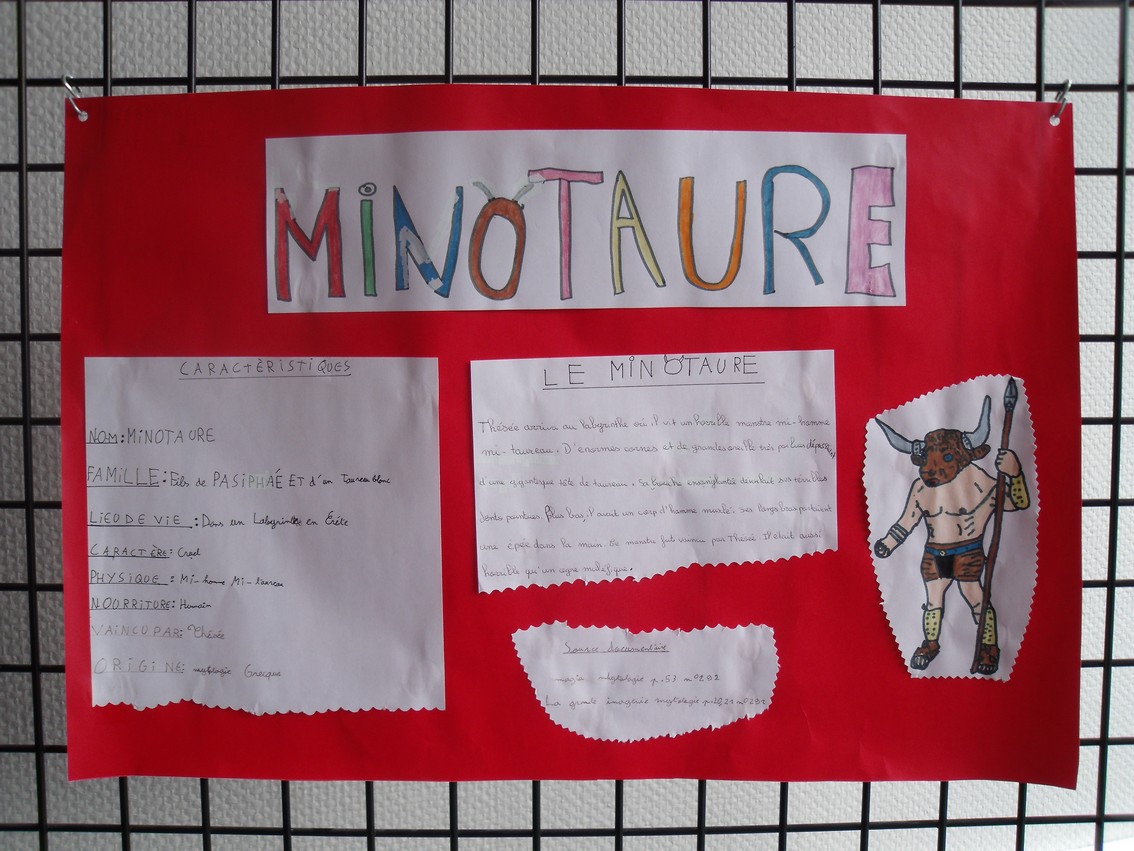 MiNOTAURE
CARACTÈRISTIQUES
NOM : MiNOTAURE
FAMiLLE : Fils de PASIPHAÉ ET d'un Taureau blanc
LiEU DE ViE : Dans un Labyrinthe en Crète
CARACTÈRE : Cruel
PHYSIQUE : Mi-homme Mi-taureau
NOURRITURE : Humain
VAiNCU PAR : Thésée
ORiGiNE : mythologie Grecque
LE MiNOTAURE
Thésée arriva au labyrinthe où il vit un horrible monstre mi-homme
mi-taureau. D'énormes cornes et de grandes oreille très poilues dépassaient
d'une gigantesque tête de taureau. Sa bouche ensanglantée dévoilait ses
dents pointues. Plus bas, il avait un corp d'homme musclé. Ses longs bras portaient
une épée dans la main. Ce monstre fut vaincu par Thésée. Il était aussi
horrible qu'un ogre maléfique.
Source documentaire
mythologie p.53 n°292
La grande imagerie mythologie n°291